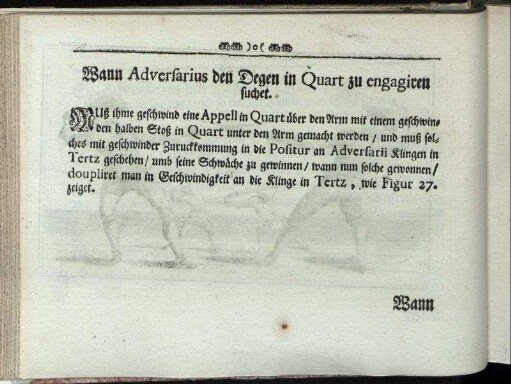 )o(
Wann Adversarius den Degen in Quart zu engagiren
suchet.
MUß ihme geschwind eine Appell in Quart über den Arm mit einem geschwin-
den halben Stoß in Quart unter den Arm gemacht werden / und muß sol-
ches mit geschwinder Zuruckkommung in die Positur an Adversarii Klingen in
Tertz geschehen / umb seine Schwäche zu gewinnen / wann nun solche gewonnen /
doupliret man in Geschwindigkeit an die Klinge in Tertz, wie Figur 27.
zeiget.
Wann